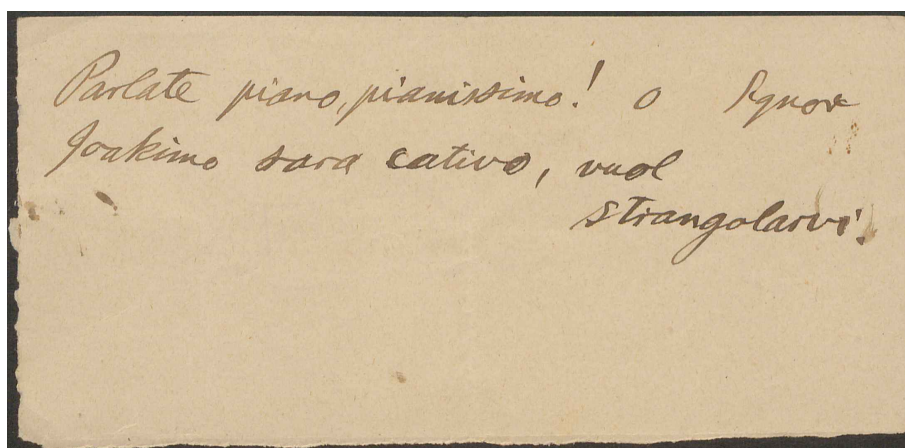 Parlate piano, pianissimo! o Signor
Joakimo sara cativo, vuol
strangolarvi.